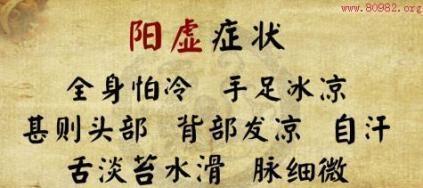 www.80982.org
阳虚症状
全身怕冷 手足冰凉
甚则头部 背部发凉 自汗
舌淡苔水滑 脉细微